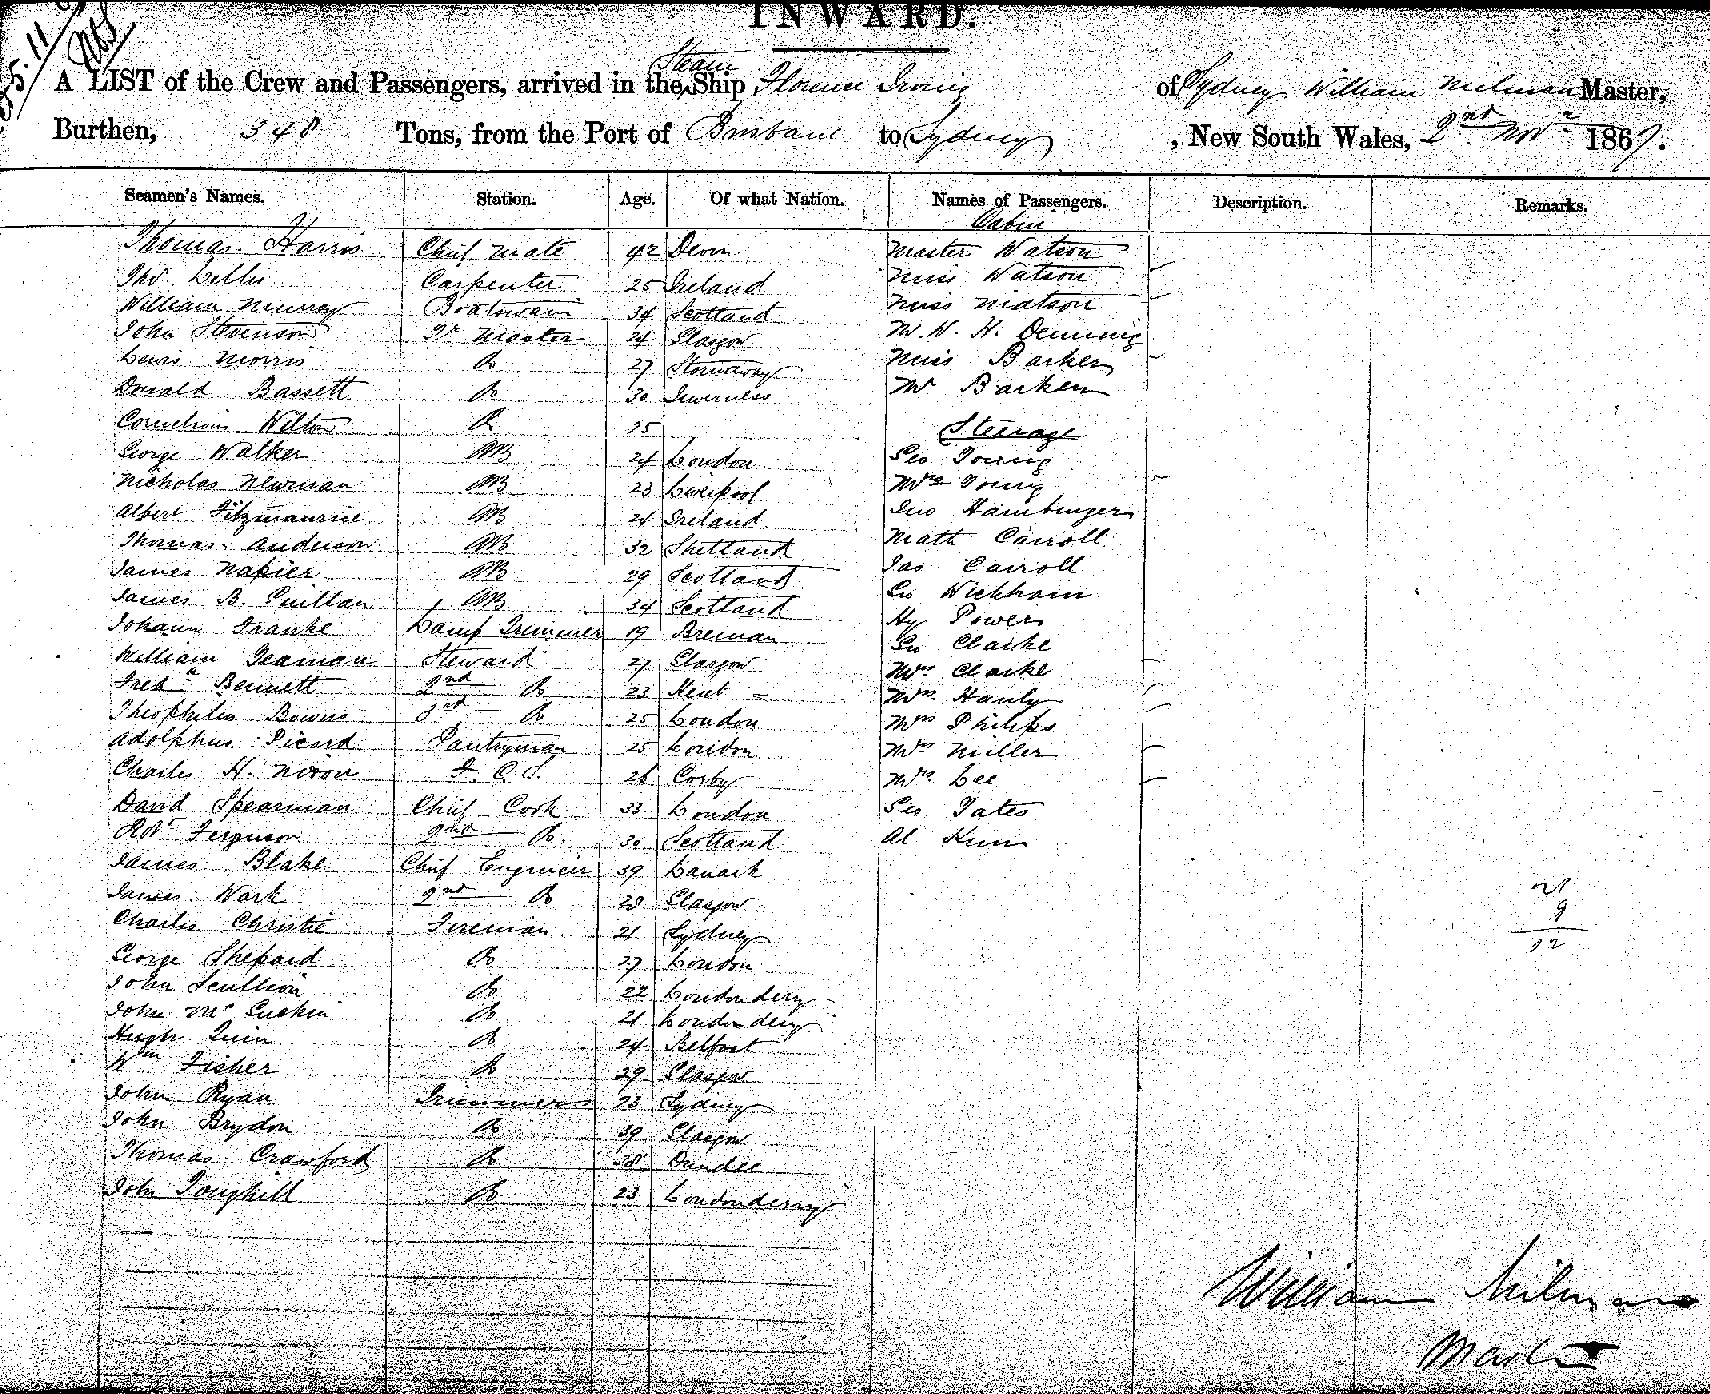 INWARD.
A LIST of the Crew and Passengers, arrived in the Steam Ship Florence Irving of Sydney William Milman Master,
Burthen, 348 Tons, from the Port of Brisbane to Sydney, New South Wales, 2nd Novr 1867.
Seamen's Names. Station. Age. Of what Nation. Names of Passengers. Description. Remarks.
Cabin
Thomas Harris Chief Mate 42 Devon Master Watson
Carpenter 25 Ireland Miss Watson
William Murray Boatswain 34 Scotland Miss Matson
John Stevenson Qr Master 24 Glasgow Mr W. H. Denning
Lewis Morris Do 27 Stornoway Miss Barker
Donald Bassett Do 30 Inverness Mr Barker
Cornelius Wilton Do 25
Steerage
George Walker AB 24 London Geo Young
Nicholas Newman AB 23 Liverpool Mrs Young
Albert Fitzmaurice AB Ireland Jno Hamburger
Thomas Anderson AB 32 Shetland Math Carroll
James Napier AB 29 Scotland Jas Carroll
James B. AB 24 Scotland Wickham
Johann Franke Lamp Trimmer 19 Breman Hy Power
William Yeaman Steward 27 Glasgow Clarke
Fredk Bennett 2nd Do 23 Kent Mrs Clarke
Theophilus Bowns 3rd Do 25 London Mrs Hanly
Adolphus Picard Pantryman 25 London Mrs Philips
Charles H. Nixon F. C. S. 26 Corby Mrs Miller
David Spearman Chief Cook 33 London Mrs Lee
Robt Ferguson 2nd Do 30 Scotland Geo Yates
James Blake Chief Engineer 39 Lanark Al
James Wark 2nd Do 28 Glasgow
Charles Christie Fireman 21 Sydney
George Shepard Do 27 London
John Scullion Do 22 Londondery
John Mc Do 21 Londondery
Hugh Quin Do 24 Belfast
Wm Fisher Do 29 Glasgow
John Ryan Trimmers 23 Sydney
John Brydon Do 39 Glasgow
Thomas Crawford Do 28 Dundee
John Toughill Do 23 Londonderry
9
William Milman
Master